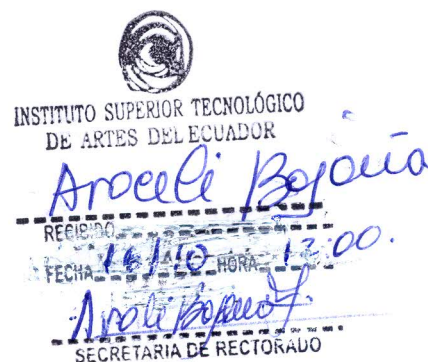 INSTITUTO SUPERIOR TECNOLÓGICO
DE ARTES DEL ECUADOR
Araceli
RECIBIDO
FECHA HORA 12:00.
SECRETARIA DE RECTORADO